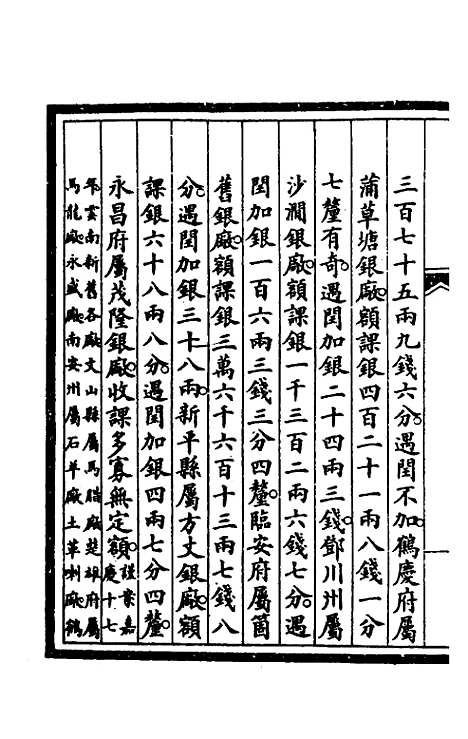 三百七十五兩九錢六分遇閏不加鶴慶府屬
蒲草塘銀廠額課銀四百二十一兩八錢一分
七釐有奇遇閏加銀二十四兩三錢鄧川州屬
沙澗銀廠額課銀一千三百二兩六錢七分遇
閏加銀一百六兩三錢三分四釐臨安府屬箇
舊銀廠額課銀三萬六千六百十三兩七錢八
分遇閏加銀三十八兩新平縣屬方丈銀廠額
課銀六十八兩八分遇閏加銀四兩七分四釐
永昌府屬茂隆銀廠收課多寡無定額謹案嘉
慶十七
年雲南新舊各廠文山縣屬馬腊廠楚雄府屬
馬龍廠永盛廠南安州屬石羊廠土革喇廠鶴